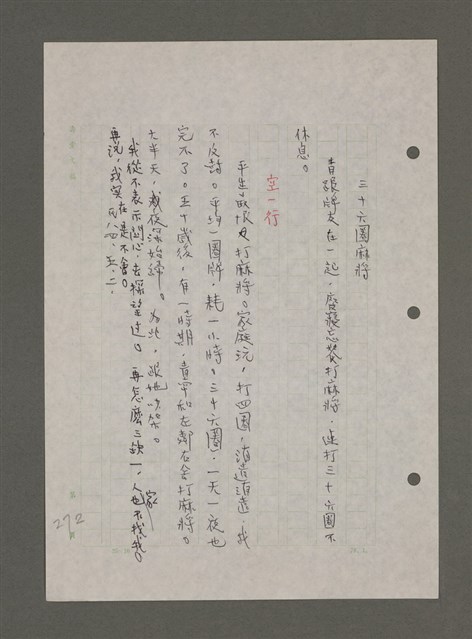 三十六圈麻將
青張牌友在一起，廢寢忘餐打麻將，連打三十六圈不
休息。
空一行
平生最恨人打麻將。家庭沅，打四圈，消遣消遣，我
不反對。平均一圈牌，耗一小時。三十六圈，一天一夜也
完不了。五十歲後，有一時期，青寧和左鄰右舍打麻將。
大半天，戴夜深始歸。為此，跟她吵架。
我從不表示關心，去探望過。再怎麼三缺一，人家也不找我。
再說，我實在是不會。
八四、五、二、
272